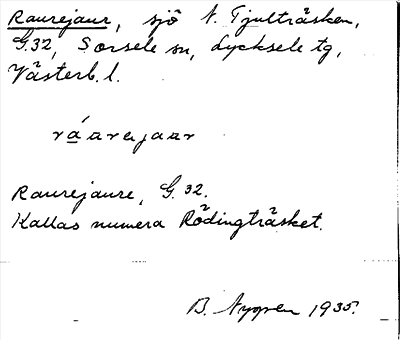 Raurejaur, sjö N. Tjulträsken,
G.32, Sorsele sn, Lycksele tg,
Västerb. l.
ráarejaar
Raurejaure, G. 32.
Kallas numera Rödingträsket.
B. Nygren 1935.